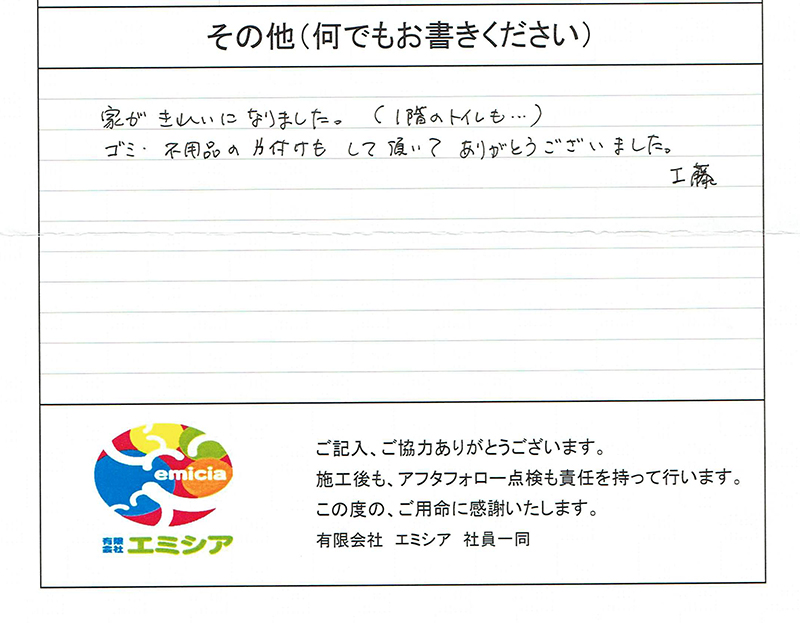 その他(何でもお書きください)
家が きれいに なりました。 (1階のトイレも…)
ゴミ・不用品の片付けも して頂いて ありがとうございました。
工藤
emicia
有限会社 エミシア
ご記入、ご協力ありがとうございます。
施工後も、アフタフォロー点検も責任を持って行います。
この度の、ご用命に感謝いたします。
有限会社 エミシア 社員一同